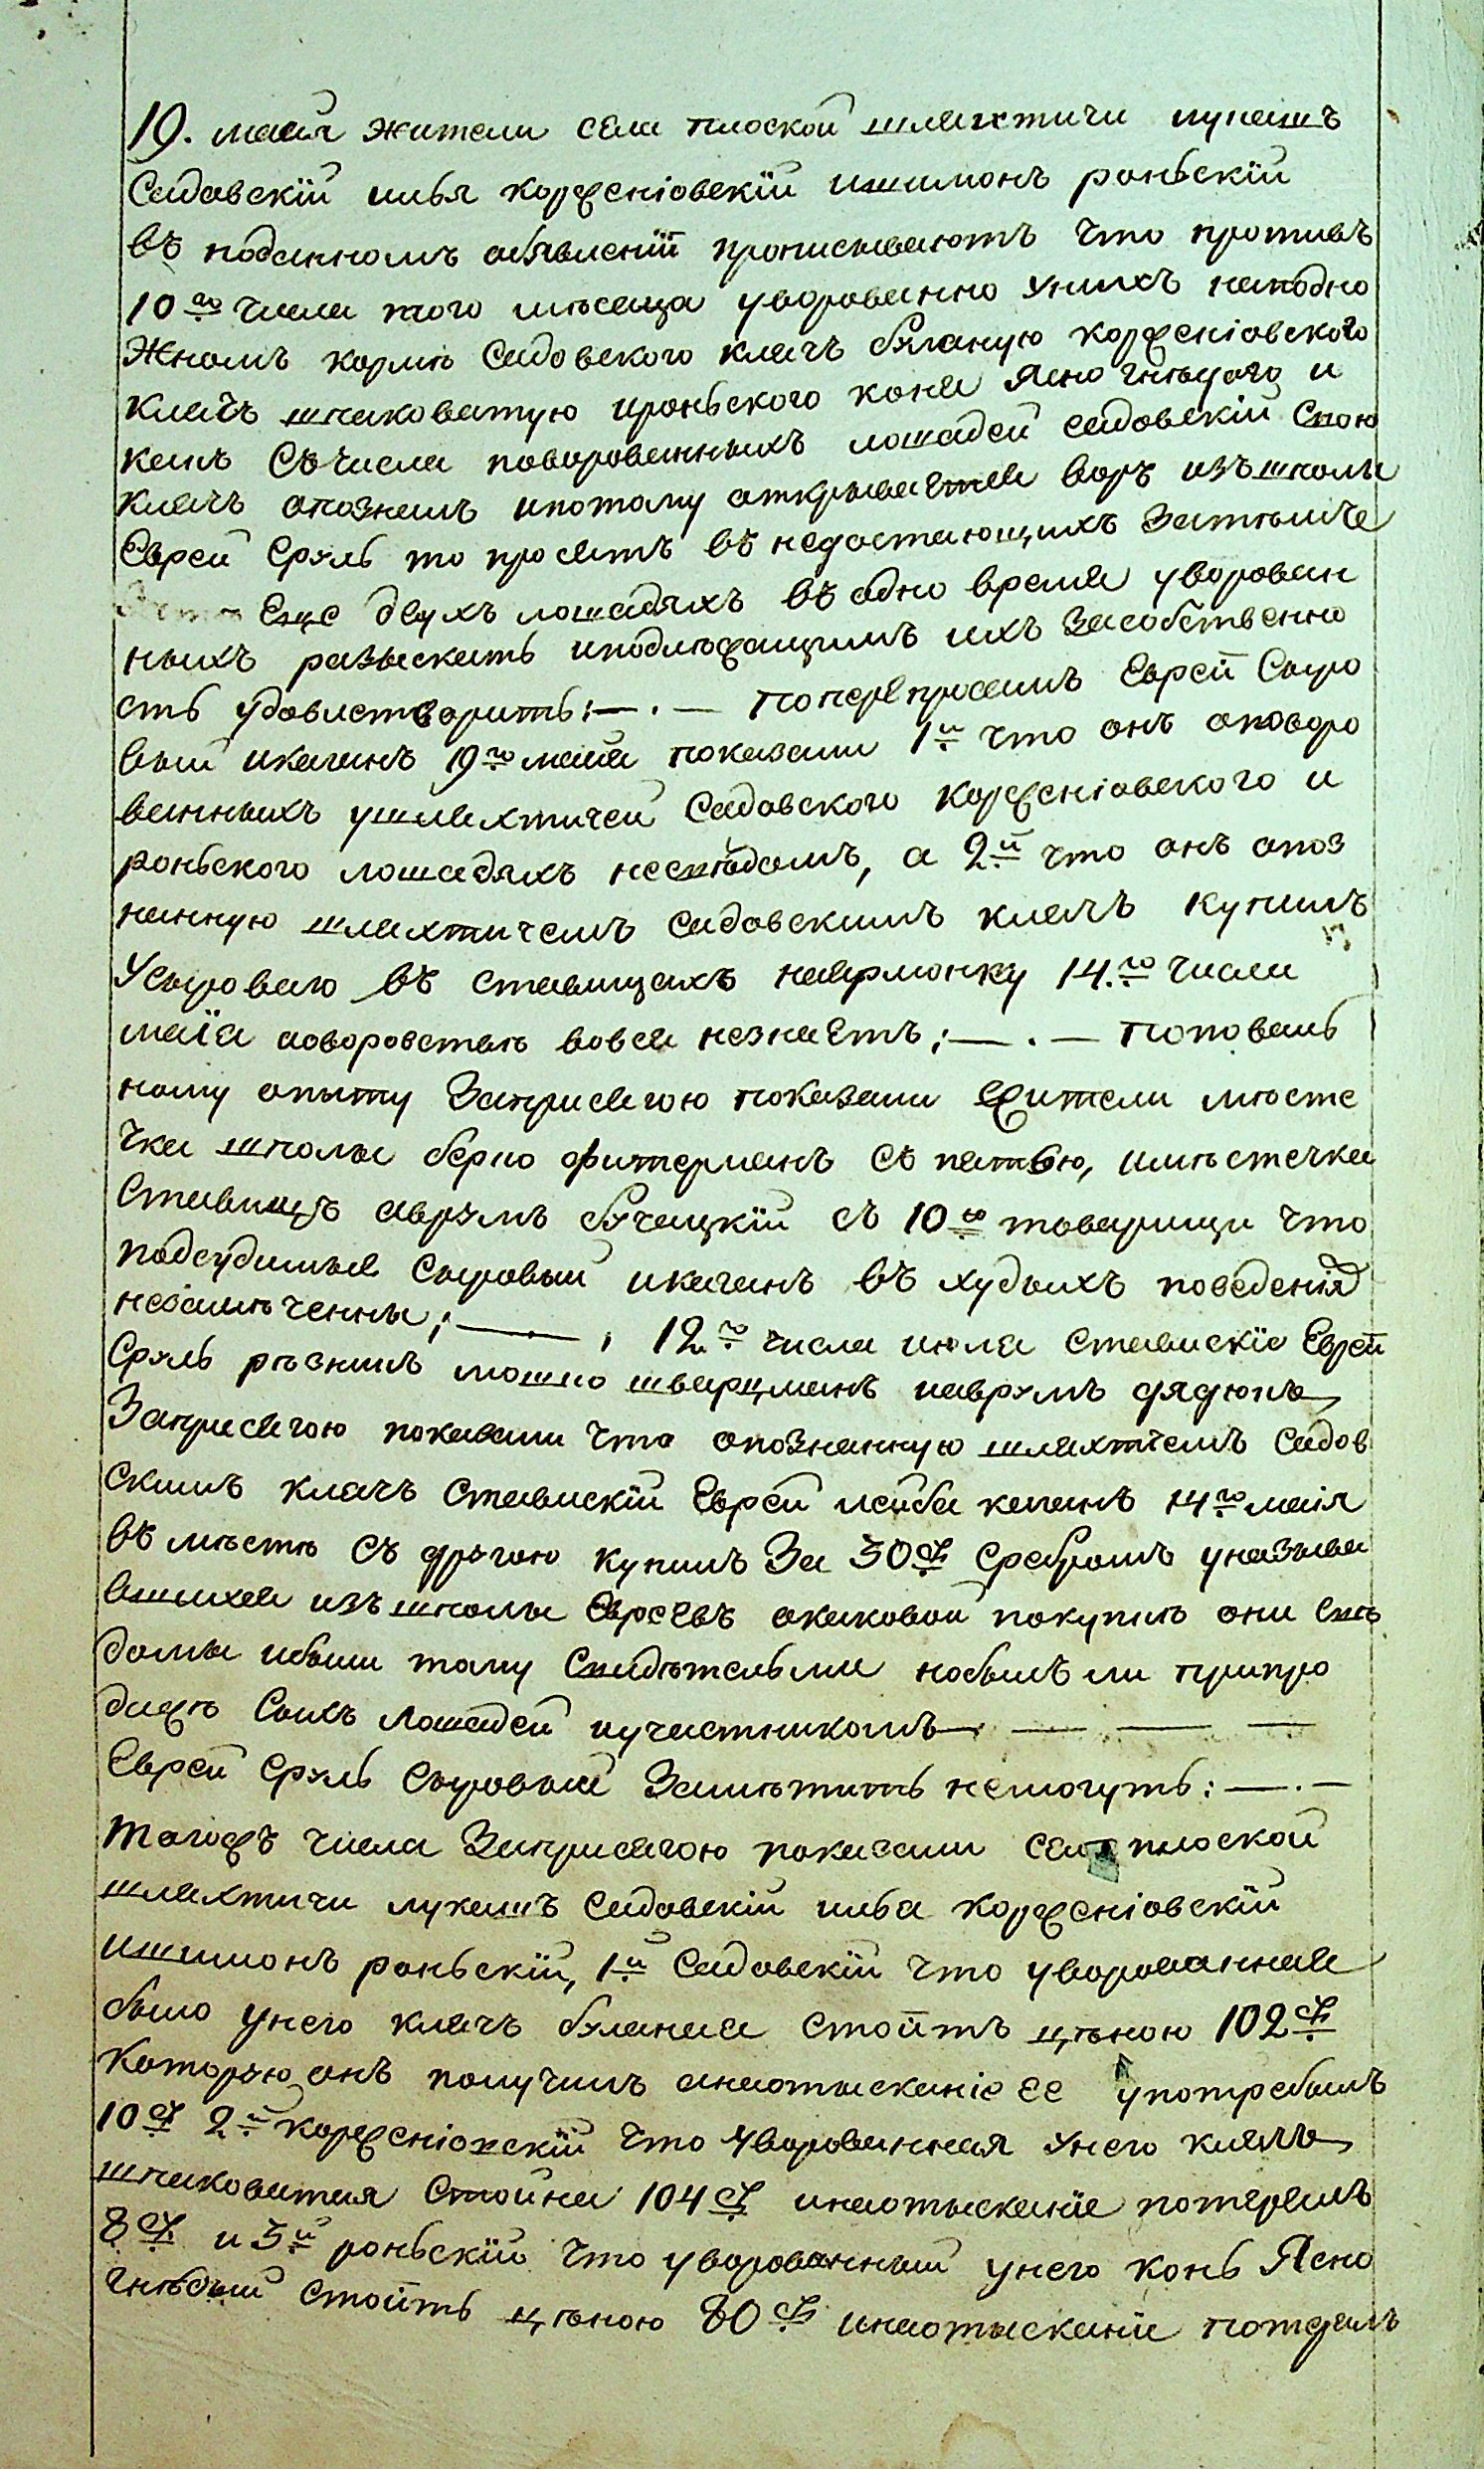 19. маия жители села плоской шляхтичи лукашъ
Садовскій илья корженіовскій ишимонъ роньскій
въ поданномъ обявленій прописываютъ что противъ
10го числа того мѣсяца уворованно унихъ наподно
жномъ кормѣ Садовского клячъ буланую корженіовского
клячъ шпаковатую ироньского коня Ясно гнѣдого и
какъ съчисла поворованныхъ лошадей садовскій Свою
клячъ опозналъ ипотому открывается воръ изъ шполы
Еврей Сруль то просятъ въ недостающихъ Затѣмъ
Еще двухъ лошадяхъ въ одно время уворован
ныхъ разыскать иподлежащимъ ихъ Засобственно
сть удовлетворить:—.— поперепросамъ Еврей Сыро
вый икаганъ 19го маия показали 1й что онъ оповоро
ванныхъ ушляхтичей Садовского Корженіовского и
роньского лошадяхъ несвѣдомъ, а 2й что онъ опоз
нанную шляхтичемъ садовскимъ клячъ купилъ
Усыроваго въ ставищахъ наярмонку 14.го числа
маія аоворовствѣ вовся незнаетъ;—.— поповаль
ному опыту Заприсягою показали жители мѣсте
чка шполы берко фитерманъ съ пятью, имѣстечка
Ставищъ аврумъ бучацкій съ 10ю товарищи что
подсудимые Сыровый икаганъ въ худыхъ поведенія
незамѣченны;—.—, 12го числа июля ставискіе Евреи
Сруль рѣзникъ мошко шварцманъ иаврумъ дядюкъ
Заприсягою показали что опознанную шляхтичемъ Садов
скимъ клячъ Ставискій Еврей лейба каганъ 14го маія
въ мѣстѣ съ другою купилъ За 50 р. сребромъ уназыва
вшихся изъ шполы Евреевъ окаковой покупкѣ они свѣ
домы ибыли тому Свидѣтельми нобылъ ли припро
дажѣ Сихъ Лошадей иучастникомъ — — — —
Еврей Сруль Сыровый Замѣтить немогутъ:—.—
тогожъ числа Заприсягою показали села плоской
шляхтичи лукашъ Садовскій илья корженіовскій
ишимонъ роньскій, 1й Садовскій что уворованная
было унего клячъ буланая стоитъ цѣною 102 р.
которую онъ получилъ анаотысканіе ее употребилъ
10 р. 2й корженіовскій что Уворованная Унего клячъ
шпаковатая Стойна 104 р. инаотысканіе потерялъ
8 р. и 3й роньскій что уворованный унего конь Ясно
гнѣдый стоитъ цѣною 80 р. инаотысканіе потерялъ